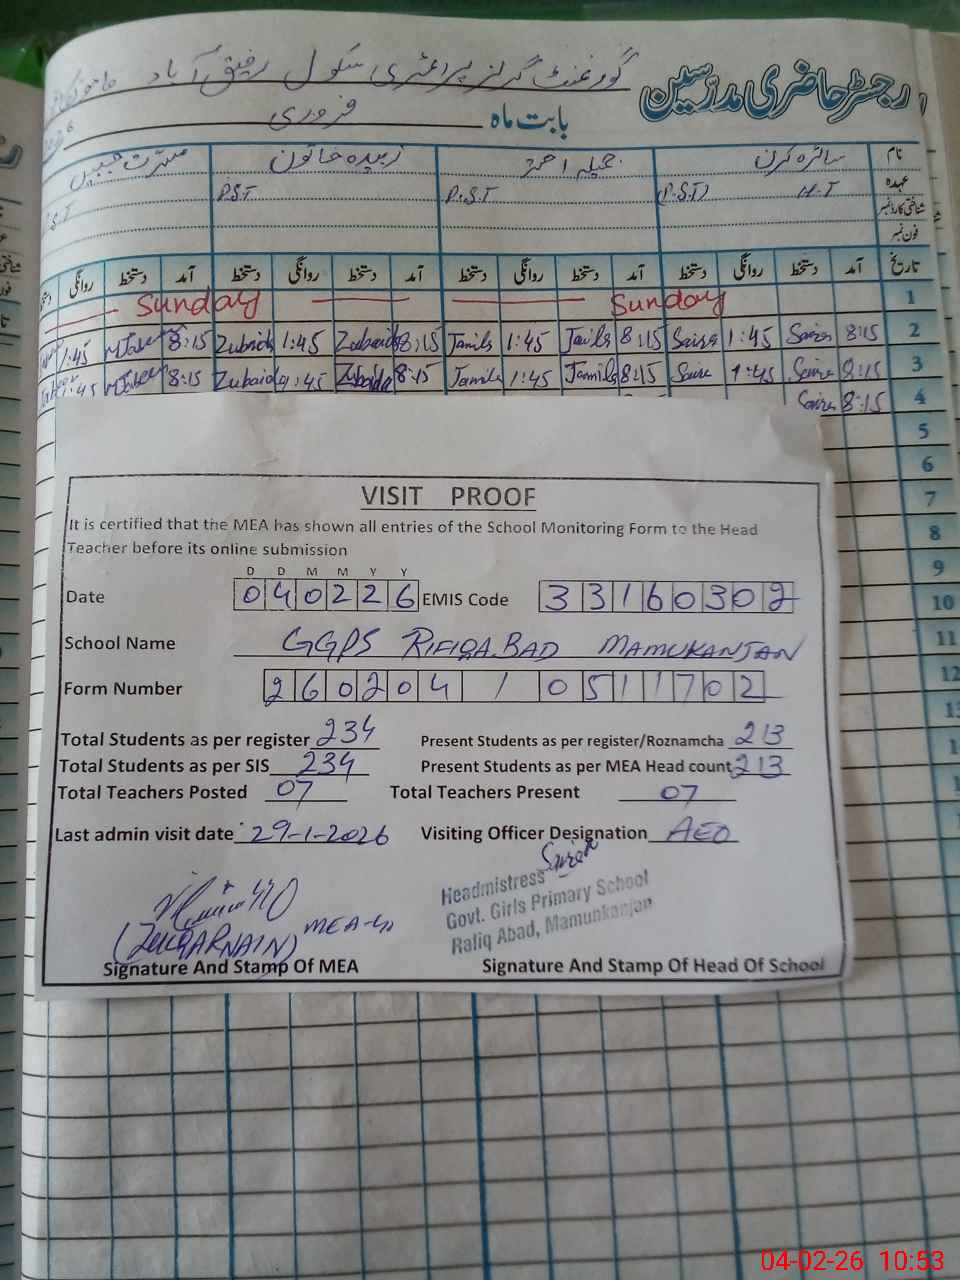 رجسٹر حاضری مدرسین
گورنمنٹ گرلز پرائمری سکول رفیق آباد
بابت ماہ فروری
نام سائرہ کرن جمیلہ احمد زبیدہ خاتون مسرت جبیں
عہدہ H.T (P.S.T) P.S.T P.S.T S.T
شناختی کارڈ نمبر
فون نمبر
تاریخ آمد دستخط روانگی دستخط آمد دستخط روانگی دستخط آمد دستخط روانگی دستخط آمد دستخط روانگی
1 Sunday Sunday
2 8:15 Saira 1:45 Saira 8:15 Jamila 1:45 Jamila 8:15 Zubaida 1:45 Zubaida 8:15 1:45
3 8:15 Saira 1:45 Saira 8:15 Jamila 1:45 Jamila 8:15 Zubaida 1:45 Zubaida 8:15 1:45
4 8:15 Saira
5
6
7
8
9
10
11
12
VISIT PROOF
It is certified that the MEA has shown all entries of the School Monitoring Form to the Head
Teacher before its online submission
D D M M Y Y
Date 040226 EMIS Code 33160302
School Name GGPS RIFIQABAD MAMUKANJAN
Form Number 260204 / 0511702
Total Students as per register 234 Present Students as per register/Roznamcha 213
Total Students as per SIS 234 Present Students as per MEA Head count 213
Total Teachers Posted 07 Total Teachers Present 07
Last admin visit date 29-1-2026 Visiting Officer Designation AEO
Saira
Headmistress
Govt. Girls Primary School
Rafiq Abad, Mamunkanjan
(ZULQARNAIN) MEA
Signature And Stamp Of MEA Signature And Stamp Of Head Of School
04-02-26 10:53